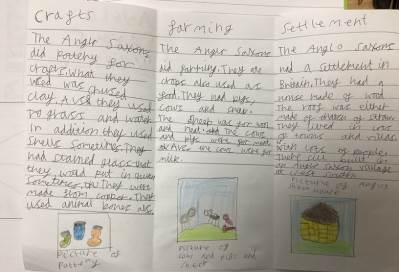 Crafts
The Anglo Saxons
did pottery for
crafts. What they
used was
clay. Also they used
to grass and water
In addition they used
Shells Sometimes. They
had stained glass that
they would put in
Sometimes. They were
made from copper. They
used animal bones als
Picture of
Pottery
farming
The Anglo Saxons
did farming. They ate
crops also used as
food. They had pigs,
cows and sheep.
The sheep was for wool
and meat. the cows
and pigs were for meat.
Also the cows were for
milk.
Picture of
cow and pigs and
sheep
Settlement
The Anglo Saxons
had a settlement in
Britain. They had a
house made of wood
The roof was either
made of thatch or straw
They lived in lots
of towns and villages
with lots of people.
There built in
an Anglo Saxon village
at west
Picture of anglo
house